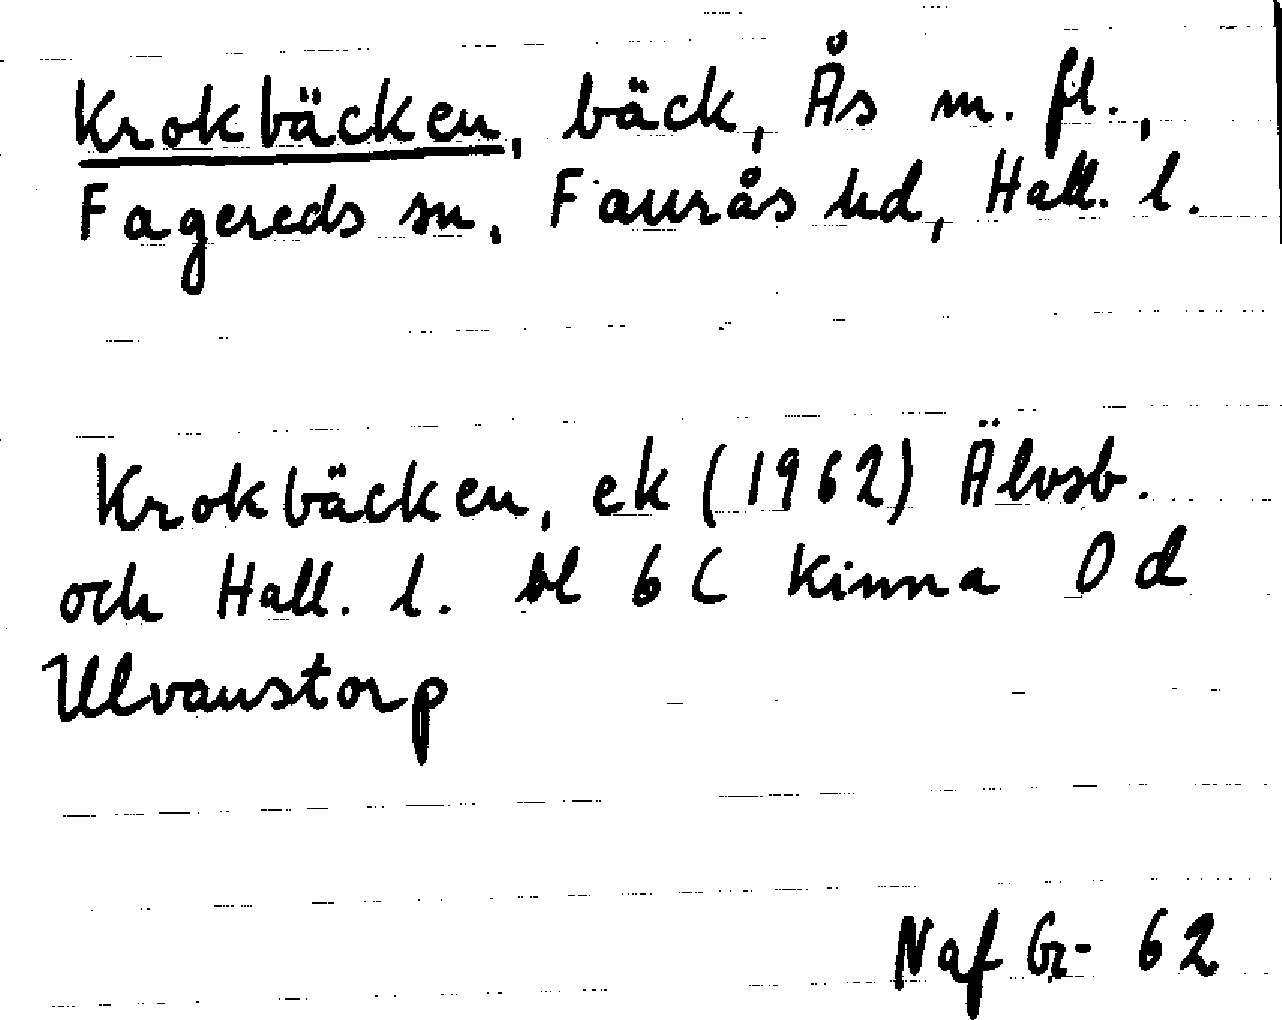 Krokbäcken, bäck, Ås m. fl.,
Fagereds sn, Faurås hd, Hall. l.
Krokbäcken, ek (1962) Älvsb.
och Hall. l. bl 6 C Kinna 0 d
Ulvanstorp
Naf Gr- 62